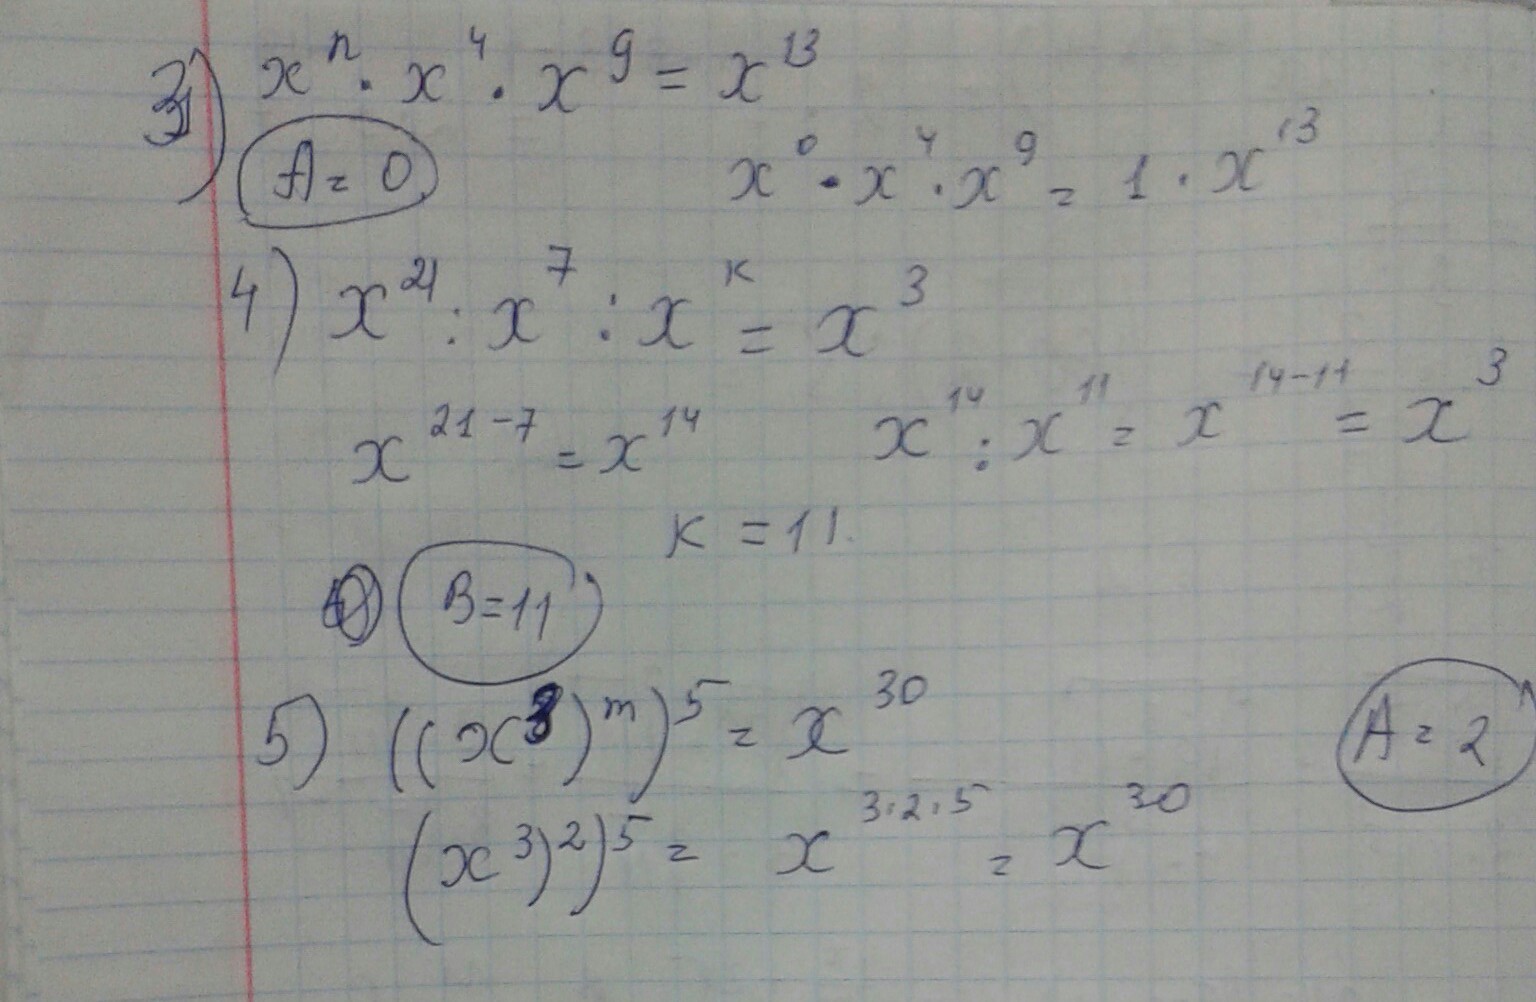 3) xⁿ · x⁴ · x⁹ = x¹³
A = 0
x⁰ · x⁴ · x⁹ = 1 · x¹³
4) x²¹ : x⁷ : xᴷ = x³
x²¹⁻⁷ = x¹⁴
x¹⁴ : x¹¹ = x¹⁴⁻¹¹ = x³
к = 11.
В = 11
5) ((x³)ᵐ)⁵ = x³⁰
A = 2
(x³)²)⁵ = x^{3·2·5} = x³⁰